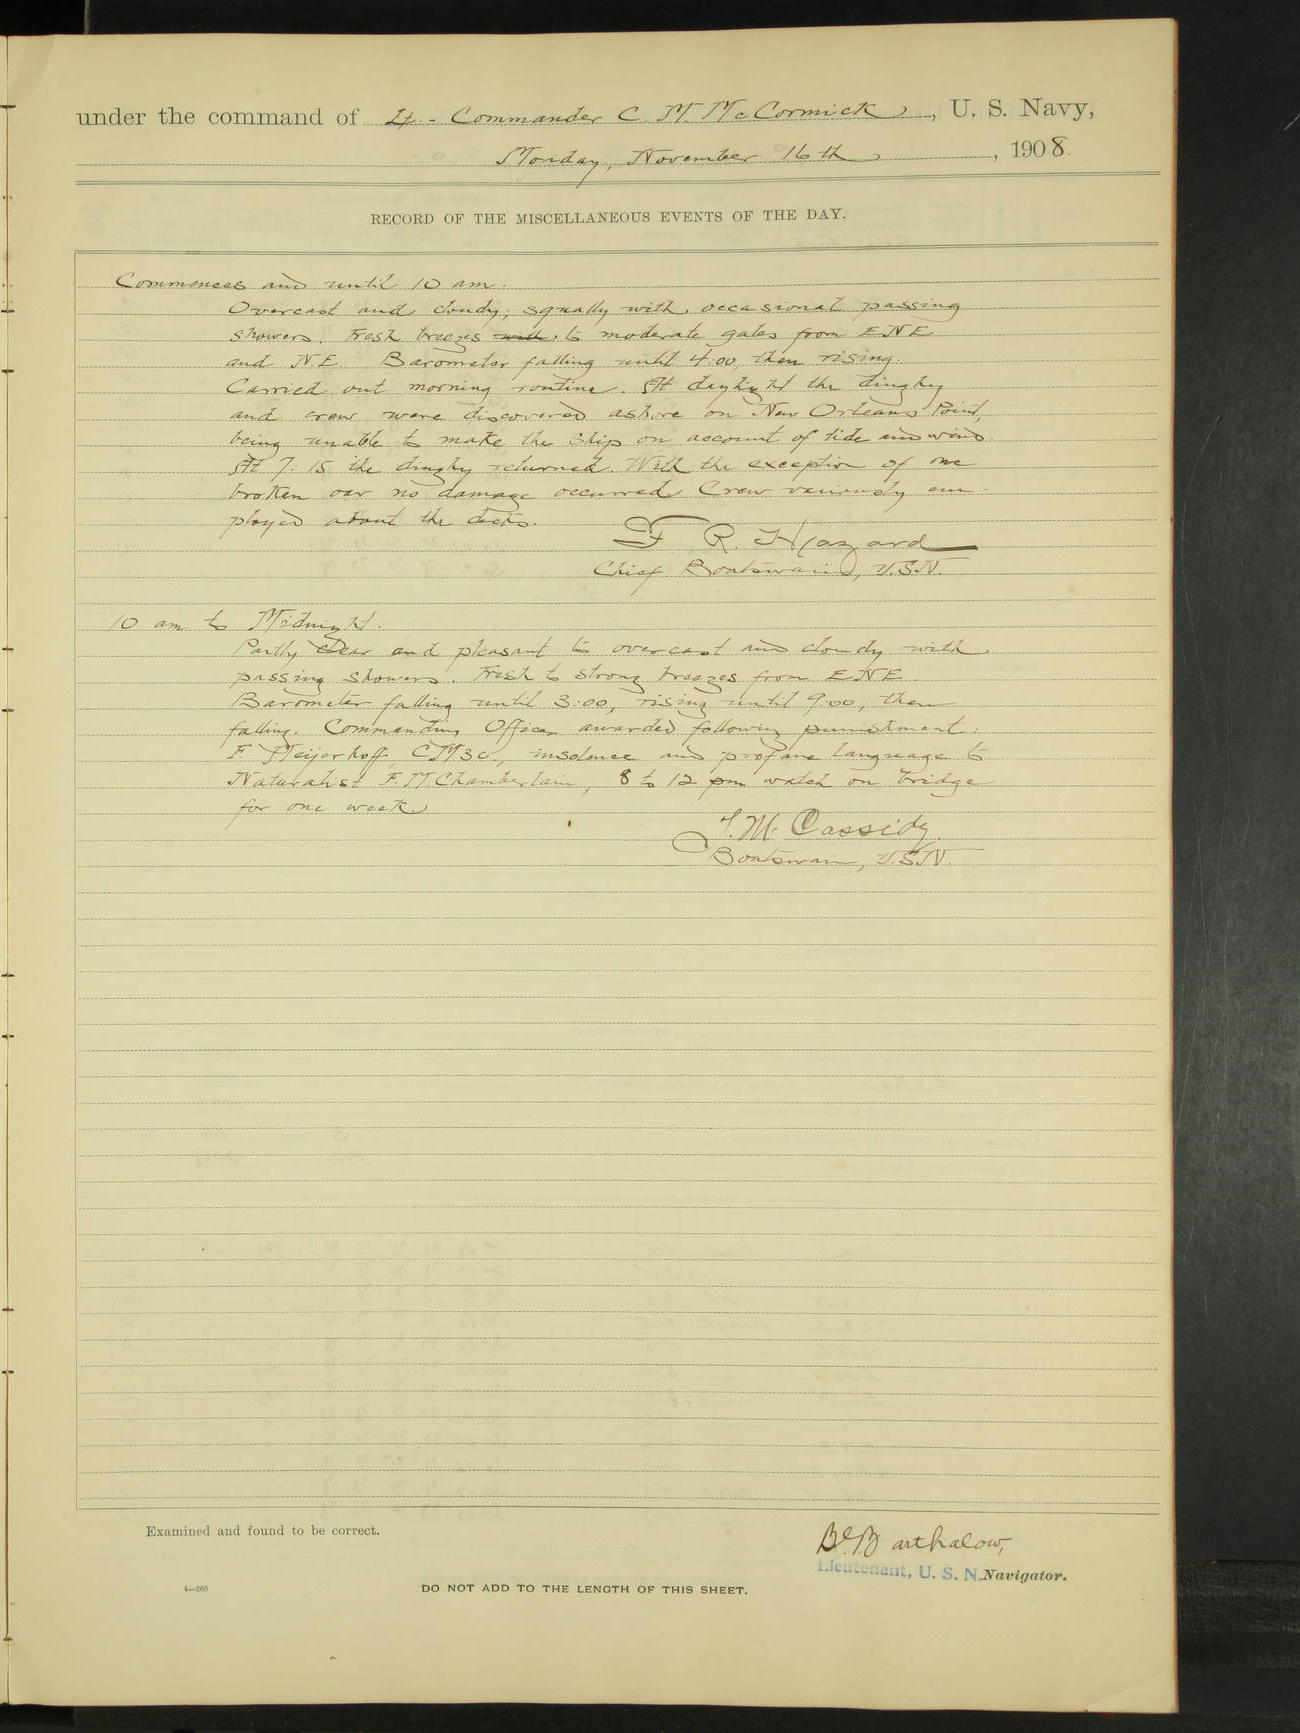 under the command of Lt.- Commander C. M. McCormick, U. S. Navy,
Monday, November 16th, 1908.
RECORD OF THE MISCELLANEOUS EVENTS OF THE DAY.
Commences and until 10 am.
Overcast and cloudy, squally with occasional passing
showers. Fresh breezes with to moderate gales from ENE
and NE. Barometer falling until 4:00, then rising.
Carried out morning routine. At daylight the dinghy
and crew were discovered ashore on New Orleans Point,
being unable to make the ship on account of tide and wind.
At 7:15 the dinghy returned. With the exception of one
broken oar no damage occurred. Crew variously em
ployed about the decks.
F. R. Hazard
Chief Boatswain, U.S.N.
10 am to Midnight.
Partly clear and pleasant to overcast and cloudy with
passing showers. Fresh to strong breezes from ENE.
Barometer falling until 3:00, rising until 9:00, then
falling. Commanding Officer awarded following punishment:
F. Meijerhoff, CM3c., insolence and profane language to
Naturalist F. M. Chamberlain, 8 to 12 pm watch on bridge
for one week.
M. Cassidy.
Boatswain, U.S.N.
Examined and found to be correct.
Barthalow,
Lieutenant, U. S. N. Navigator.
4—265
DO NOT ADD TO THE LENGTH OF THIS SHEET.